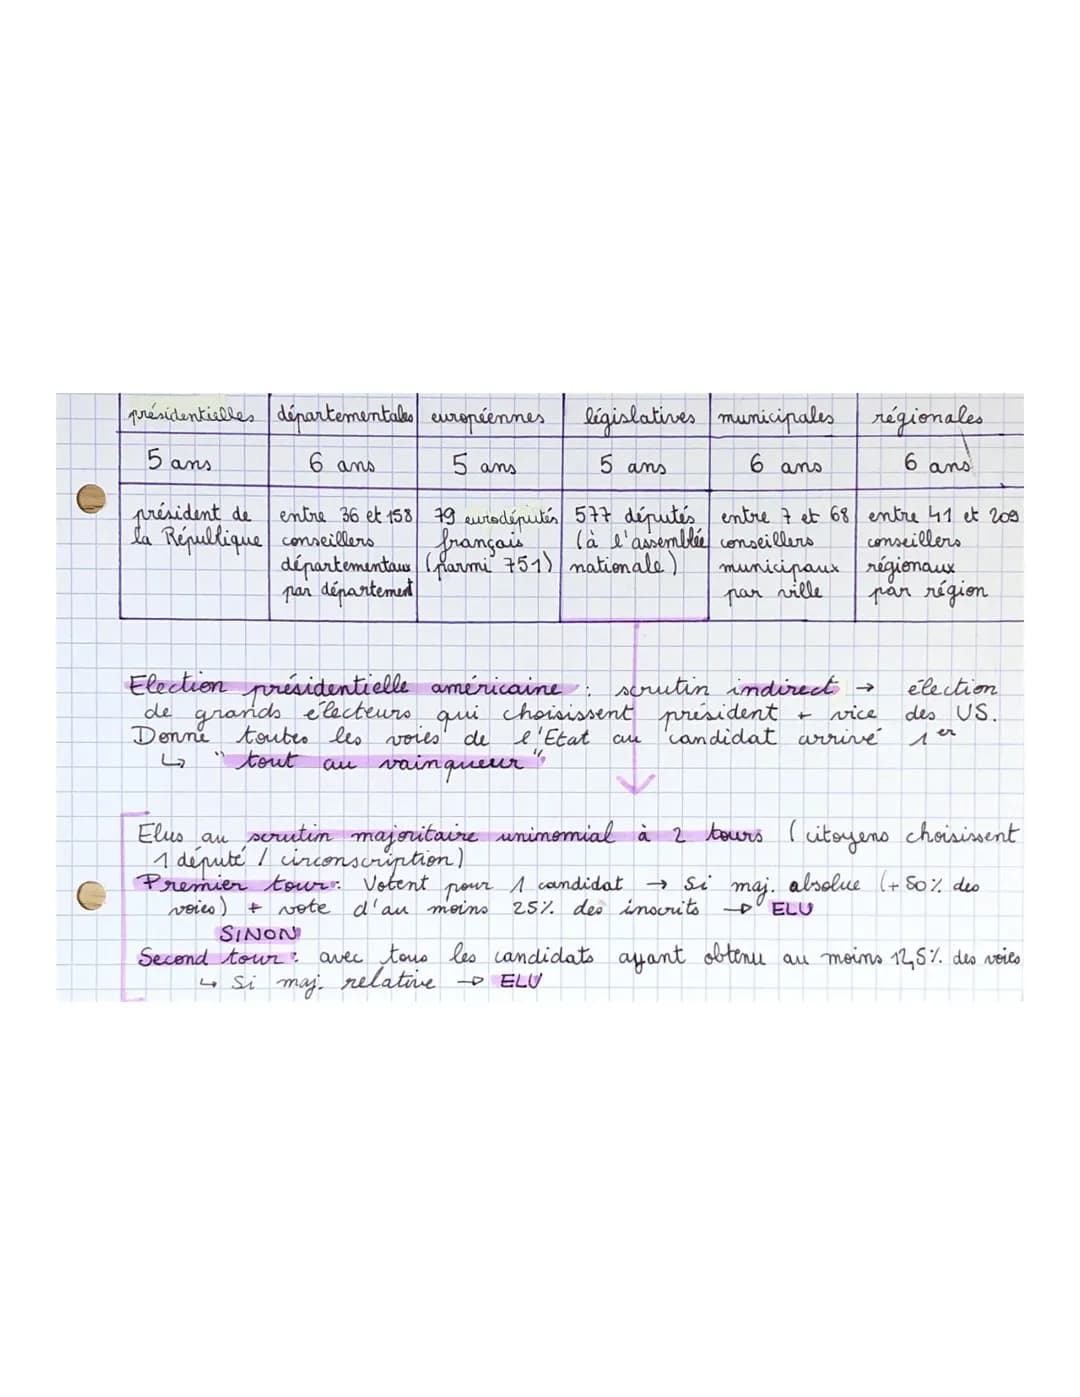 présidentielles départementales européennes législatives municipales régionales
5 ans 6 ans 5 ans 5 ans 6 ans 6 ans
président de la République
entre 36 et 158 conseillers départementaux par département
79 eurodéputés français (parmi 751)
577 députés (à l'assemblée nationale)
entre 7 et 68 conseillers municipaux par ville
entre 41 et 209 conseillers régionaux par région
Election présidentielle américaine : scrutin indirect → élection
de grands électeurs qui choisissent président + vice des US.
Donne toutes les voies de l'Etat au candidat arrivé 1er
↳ "tout au vainqueur"
Elus au scrutin majoritaire uninomial à 2 tours (citoyens choisissent
1 député / circonscription)
Premier tour : Votent pour 1 candidat → Si maj. absolue (+ 50% des
voies) + vote d'au moins 25% des inscrits → ELU
SINON
Second tour : avec tous les candidats ayant obtenu au moins 12,5% des voies
↳ Si maj. relative → ELU